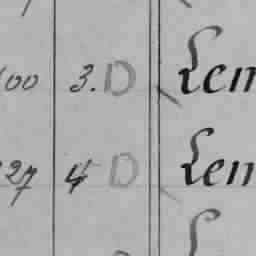 00 3. D Lem
27 4 D Lem